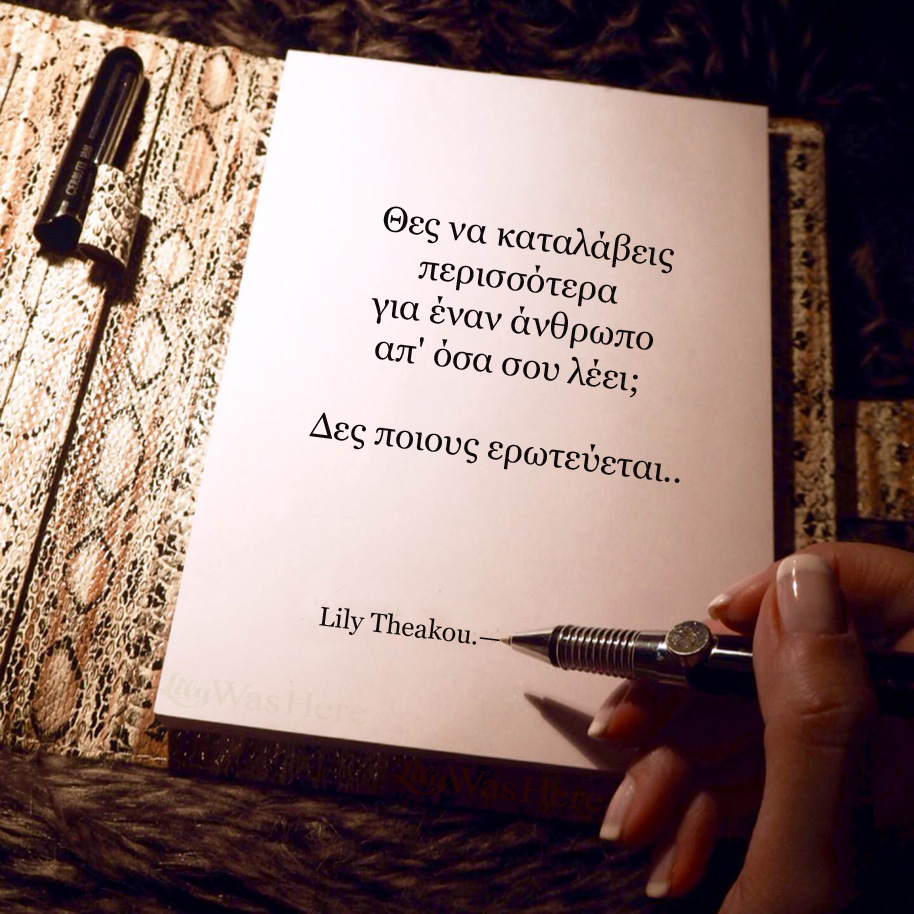 Θες να καταλάβεις
περισσότερα
για έναν άνθρωπο
απ' όσα σου λέει;
Δες ποιους ερωτεύεται..
Lily Theakou.—
LilyWasHere
LilyWasHere
CERRUTI 1881